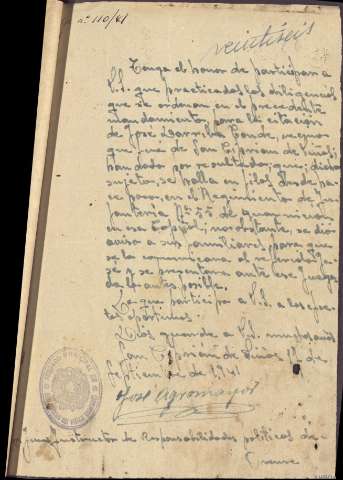 nº 110/41
veintiseis
Tengo el honor de participar a
V.S. que practicadas las diligencias
que se ordenan en el precedente
mandamiento, para la citación
de José Lgarriba Conde, vecino
que fué de San Ciprian de Viñas,
han dado por resultado; que; dicho
sujeto, se halla en filas desde ha-
ce poco, en el Regimiento de In-
fanteria Nº 35 de guarnición
en esa Capital; no obstante, se dió
aviso a sus familiares, para que
se lo comunicara al referido
sé y se presentara ante ese Juzgado
de lo antes posible.
Lo que participo a V.S. a los efec-
tos oportunos.
Dios guarde a V.S. muchos años
San Ciprián de Viñas 12 de
Septiembre de 1941
José Agromayor
Juez Instructor de Responsabilidades políticas de
Orense